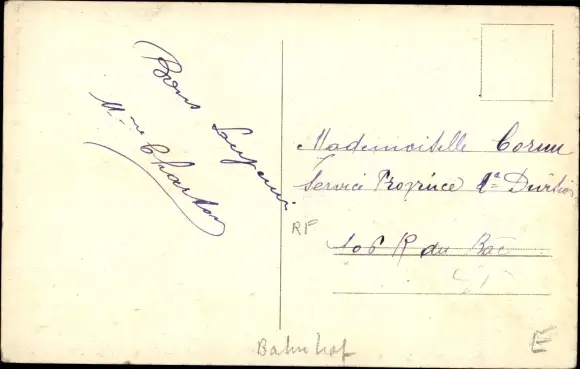 Bons Souvenirs
Mme Charton
Mademoiselle Cornu
Service Province 1e Division
106 R du Bac
RF
Bahnhof
E